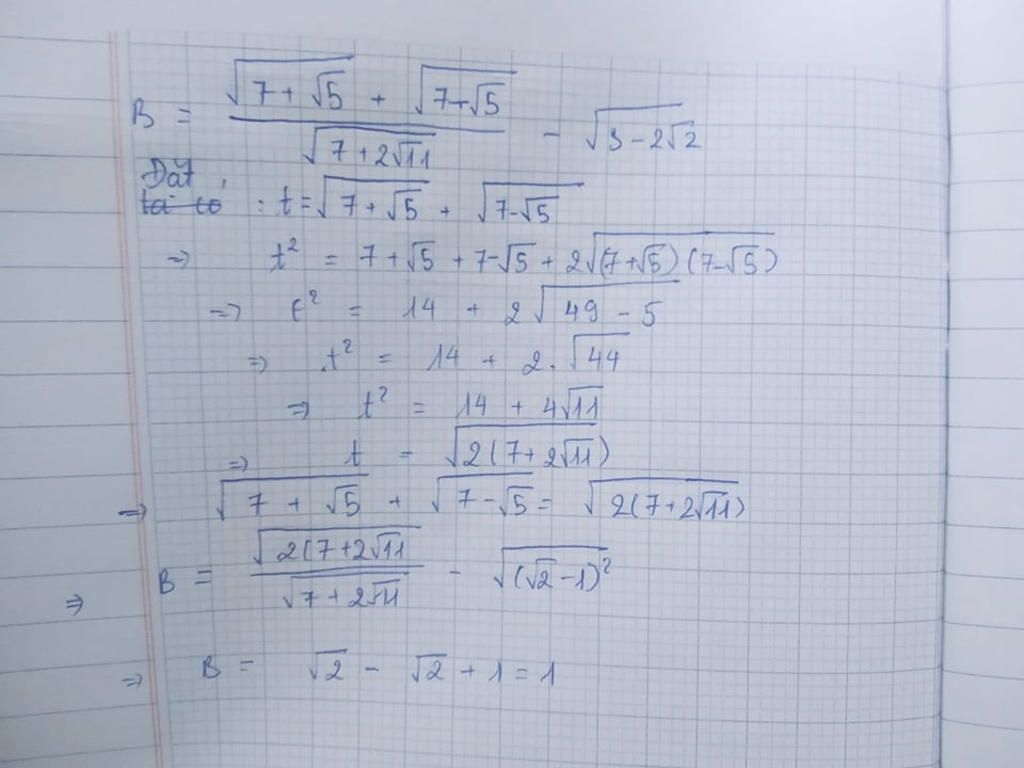 B = (√(7 + √5) + √(7-√5)) / √(7 + 2√11) - √(3 - 2√2)
Đặt
ta có : t = √(7 + √5) + √(7-√5)
=> t² = 7 + √5 + 7-√5 + 2√((7+√5)(7-√5))
=> t² = 14 + 2√(49 - 5)
=> t² = 14 + 2.√44
=> t² = 14 + 4√11
=> t = √(2(7+2√11))
=> √(7 + √5) + √(7-√5) = √(2(7+2√11))
=> B = √(2(7+2√11) / √(7+2√11) - √((√2-1)²)
=> B = √2 - √2 + 1 = 1